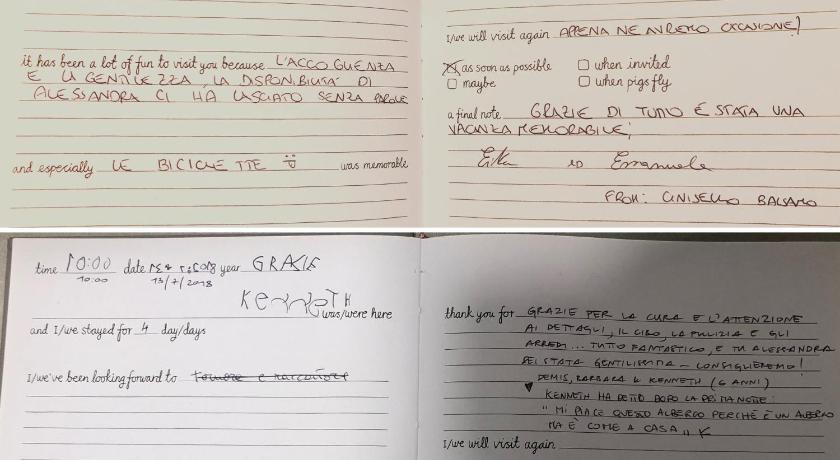 it has been a lot of fun to visit you because L'ACCOGLIENZA
E LA GENTILEZZA, LA DISPONIBILITA' DI
ALESSANDRA CI HA LASCIATO SENZA PAROLE
and especially LE BICICLETTE was memorable
I/we will visit again APPENA NE AVREMO OCCASIONE!
as soon as possible when invited
maybe when pigs fly
a final note GRAZIE DI TUTTO É STATA UNA
VACANZA MEMORABILE,
ED Emanuele
FROM: CINISELLO BALSAMO
time 10:00 date year GRAZIE
10:00 13/7/2018
KENNETH
was/were here
and I/we stayed for 4 day/days
I/we've been looking forward to
thank you for GRAZIE PER LA CURA E L'ATTENZIONE
AI DETTAGLI, IL CIBO, LA PULIZIA E GLI
ARREDI... TUTTO FANTASTICO, E TU ALESSANDRA
SEI STATA GENTILISSIMA - CONSIGLIEREMO!
DEMIS, BARBARA & KENNETH (6 ANNI)
KENNETH HA DETTO DOPO LA PRIMA NOTTE:
"MI PIACE QUESTO ALBERGO PERCHÉ È UN ALBERGO
MA È COME A CASA" K
I/we will visit again